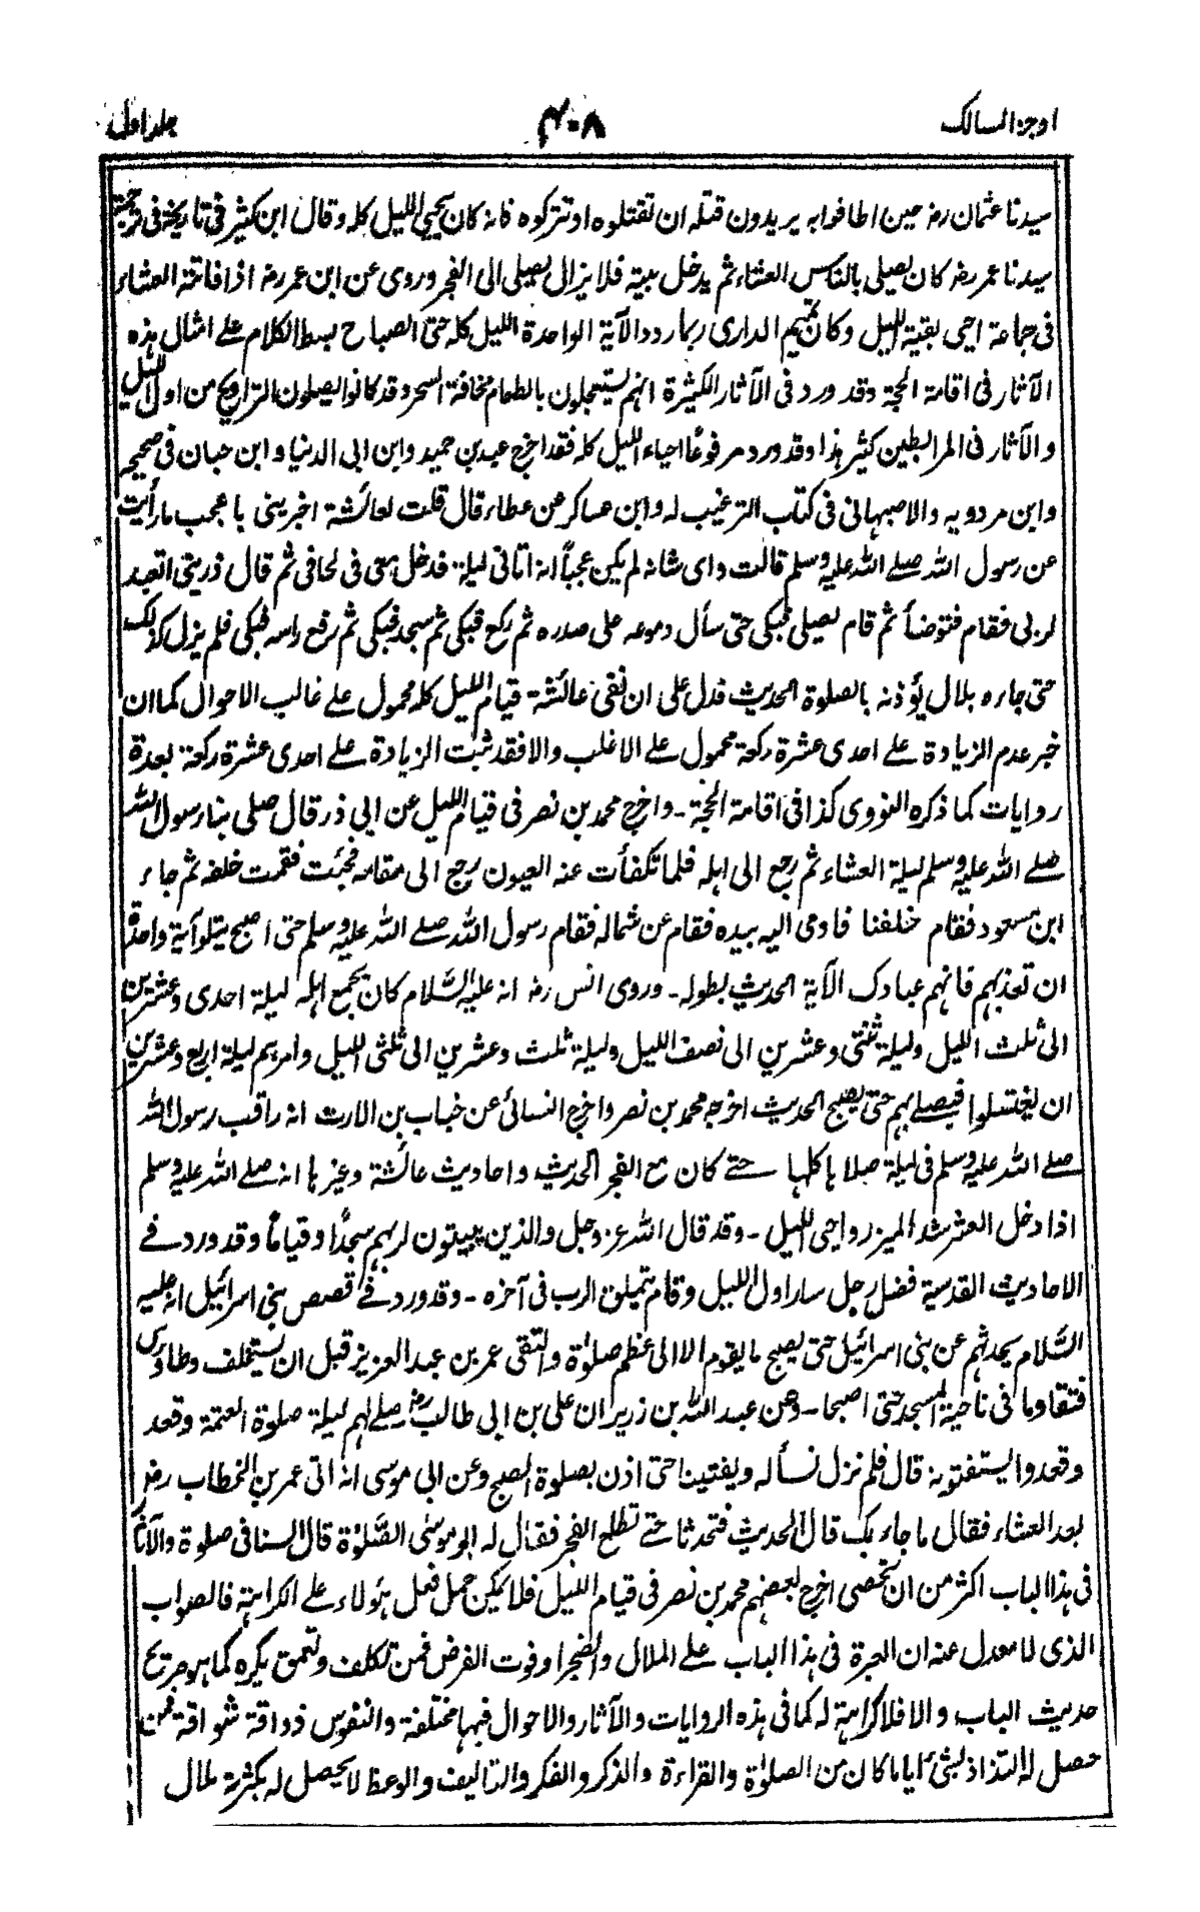 اوجز المسالك ٤٠٨ جلد اول
سيدنا عثمان رضه حين اطافوا به يريدون قتله ان تقتلوه او تتركوه فانه كان يحيي الليل كله وقال ابن كثير في تاريخه في ترجمة
سيدنا عمر رضه كان يصلي بالناس العشاء ثم يدخل بيته فلا يزال يصلي الى الفجر وروى عن ابن عمر رضه اذا فاتته العشاء
في جماعة احيى بقية الليل وكان تميم الدارى ربما ردد الآية الواحدة الليل كله حتى الصباح بسط الكلام على امثال هذه
الآثار في اقامة الحجة وقد ورد في الآثار الكثيرة انهم يستعجلون بالطعام مخافة السحر وقد كانوا يصلون التراويح من اول الليل
والآثار في المرابطين كثير هذا وقد ورد مرفوعًا احياء الليل كله فقد اخرج عبد بن حميد وابن ابى الدنيا و ابن حبان في صحيحه
وابن مردويه والاصبهانى في كتاب الترغيب له وابن عساكر عن عطاء قال قلت لعائشة اخبرينى باعجب ما رأيت
عن رسول الله صلے الله عليه وسلم قالت واى شانه لم يكن عجباً انه اتانى ليلة فدخل معى في لحافى ثم قال ذرينى اتعبد
لربى فقام فتوضأ ثم قام يصلى فبكى حتى سأل دموعه على صدره ثم ركع فبكى ثم سجد فبكى ثم رفع راسه فبكى فلم يزل كذلك
حتى جاءه بلال يؤذنه بالصلوة الحديث فدل على ان نفى عائشة قيام الليل كله محمول علے غالب الاحوال كما ان
خبر عدم الزيادة علے احدى عشرة ركعة محمول علے الاغلب والا فقد ثبت الزيادة علے احدى عشرة ركعة بعدة
روايات كما ذكره النووى كذا في اقامة الحجة - واخرج محمد بن نصر في قيام الليل عن ابى ذر قال صلى بنا رسول الله
صلے الله عليه وسلم ليلة العشاء ثم رجع الى اهله فلما تكفأت عنه العيون رجع الى مقامه فجئت فقمت خلفه ثم جاء
ابن مسعود فقام خلفنا فاومى اليه بيده فقام عن شماله فقام رسول الله صلے الله عليه وسلم حتى اصبح يتلو آية واحدة
ان تعذبهم فانهم عبادك الآية الحديث بطوله - وروى انس رضه انه عليه السَّلام كان يجمع اهله ليلة احدى وعشرين
الى ثلث الليل وليلة ثنتى وعشرين الى نصف الليل وليلة ثلث وعشرين الى ثلثى الليل وامرهم ليلة اربع وعشرين
ان يغتسلوا فيصلے بهم حتى يصبح الحديث اخرجه محمد بن نصر واخرج النسائى عن خباب بن الارت انه راقب رسول الله
صلے الله عليه وسلم في ليلة صلاها كلها حتے كان مع الفجر الحديث واحاديث عائشة وغيرها انه صلے الله عليه وسلم
اذا دخل العشر شد الميزر واحى الليل - وقد قال الله عز وجل والذين يبيتون لربهم سجدًا وقيامًا وقد ورد فے
الاحاديث القدسية فضل رجل سار اول الليل وقام يتملق الرب في آخره - وقد ورد فے قصص بنى اسرائيل انه عليه
السَّلام يحدثهم عن بنى اسرائيل حتى يصبح ما يقوم الا الى عظم صلوٰة والتقى عمر بن عبد العزيز قبل ان يستخلف وطاوس
فتقاوما في ناحية المسجد حتى اصبحا - وعن عبد الله بن زرير ان على بن ابى طالب رضه صلے لهم ليلة صلوة العتمة وقعد
وقعدوا يستفتونه قال فلم نزل نسأله ويفتينا حتى اذن بصلوة الصبح وعن ابى موسى انه اتى عمر بن الخطاب رضه
بعد العشاء فقال ما جاء بك قال الحديث فتحدثا حتے تطلع الفجر فقال له ابو موسىٰ الصَّلوٰة قال السنا في صلوة والآثار
في هذا الباب اكثر من ان تحصى اخرج بعضهم محمد بن نصر في قيام الليل فلا يمكن حمل فعل هؤلاء علے الكراهة فالصواب
الذى لا معدل عنه ان العبرة في هذا الباب علے الملال والضجر او فوت الفرض فمن تكلف وتعمق يكره كما هو صريح
حديث الباب والا فلا كراهة له كما في هذه الروايات والآثار والاحوال فيها مختلفة والنفوس ذواقة شواقة فمن
حصل له التذاذ لشئ اياما كان من الصلوٰة والقراءة والذكر والفكر والتاليف والوعظ لا يحصل له بكثرته ملال